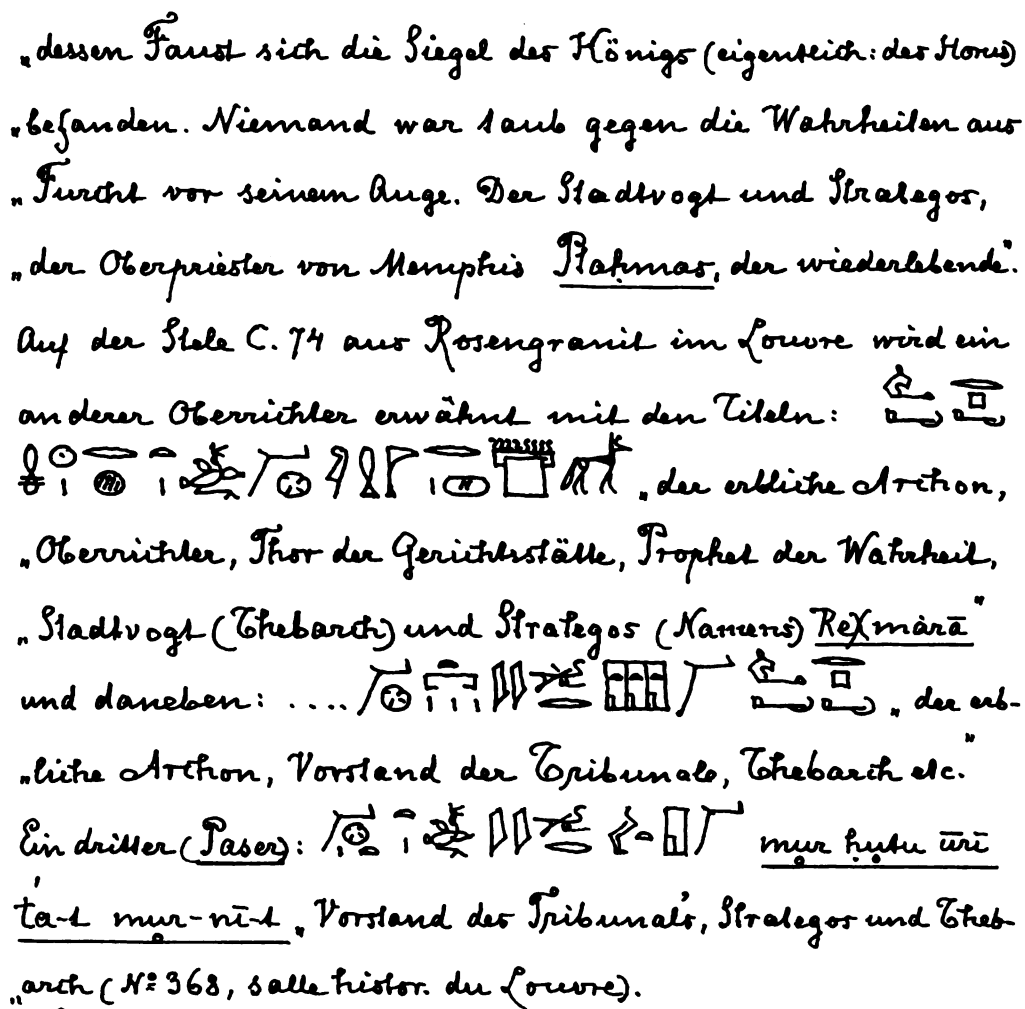 „dessen Faust sich die Siegel des Königs (eigentlich: des Horus)
„befanden. Niemand war taub gegen die Wahrheiten aus
„Furcht vor seinem Auge. Der Stadtvogt und Strategos,
„der Oberpriester von Memphis Ptaḥmas, der wiederlebende".
Auf der Stele C. 74 aus Rosengranit im Louvre wird ein
anderer Oberrichter erwähnt mit den Titeln:
„der erbliche Archon,
„Oberrichter, Thor der Gerichtsstätte, Prophet der Wahrheit,
„Stadtvogt (Thebarch) und Strategos (Namens) Reχmàrā"
und daneben: .... „der erb-
„liche Archon, Vorstand der Tribunale, Thebarch etc."
Ein dritter (Paser): mur ḥutu ūrī
t́a-t mur-nī-t „Vorstand des Tribunals, Strategos und Theb-
„arch (Nº 368, salle histor. du Louvre).